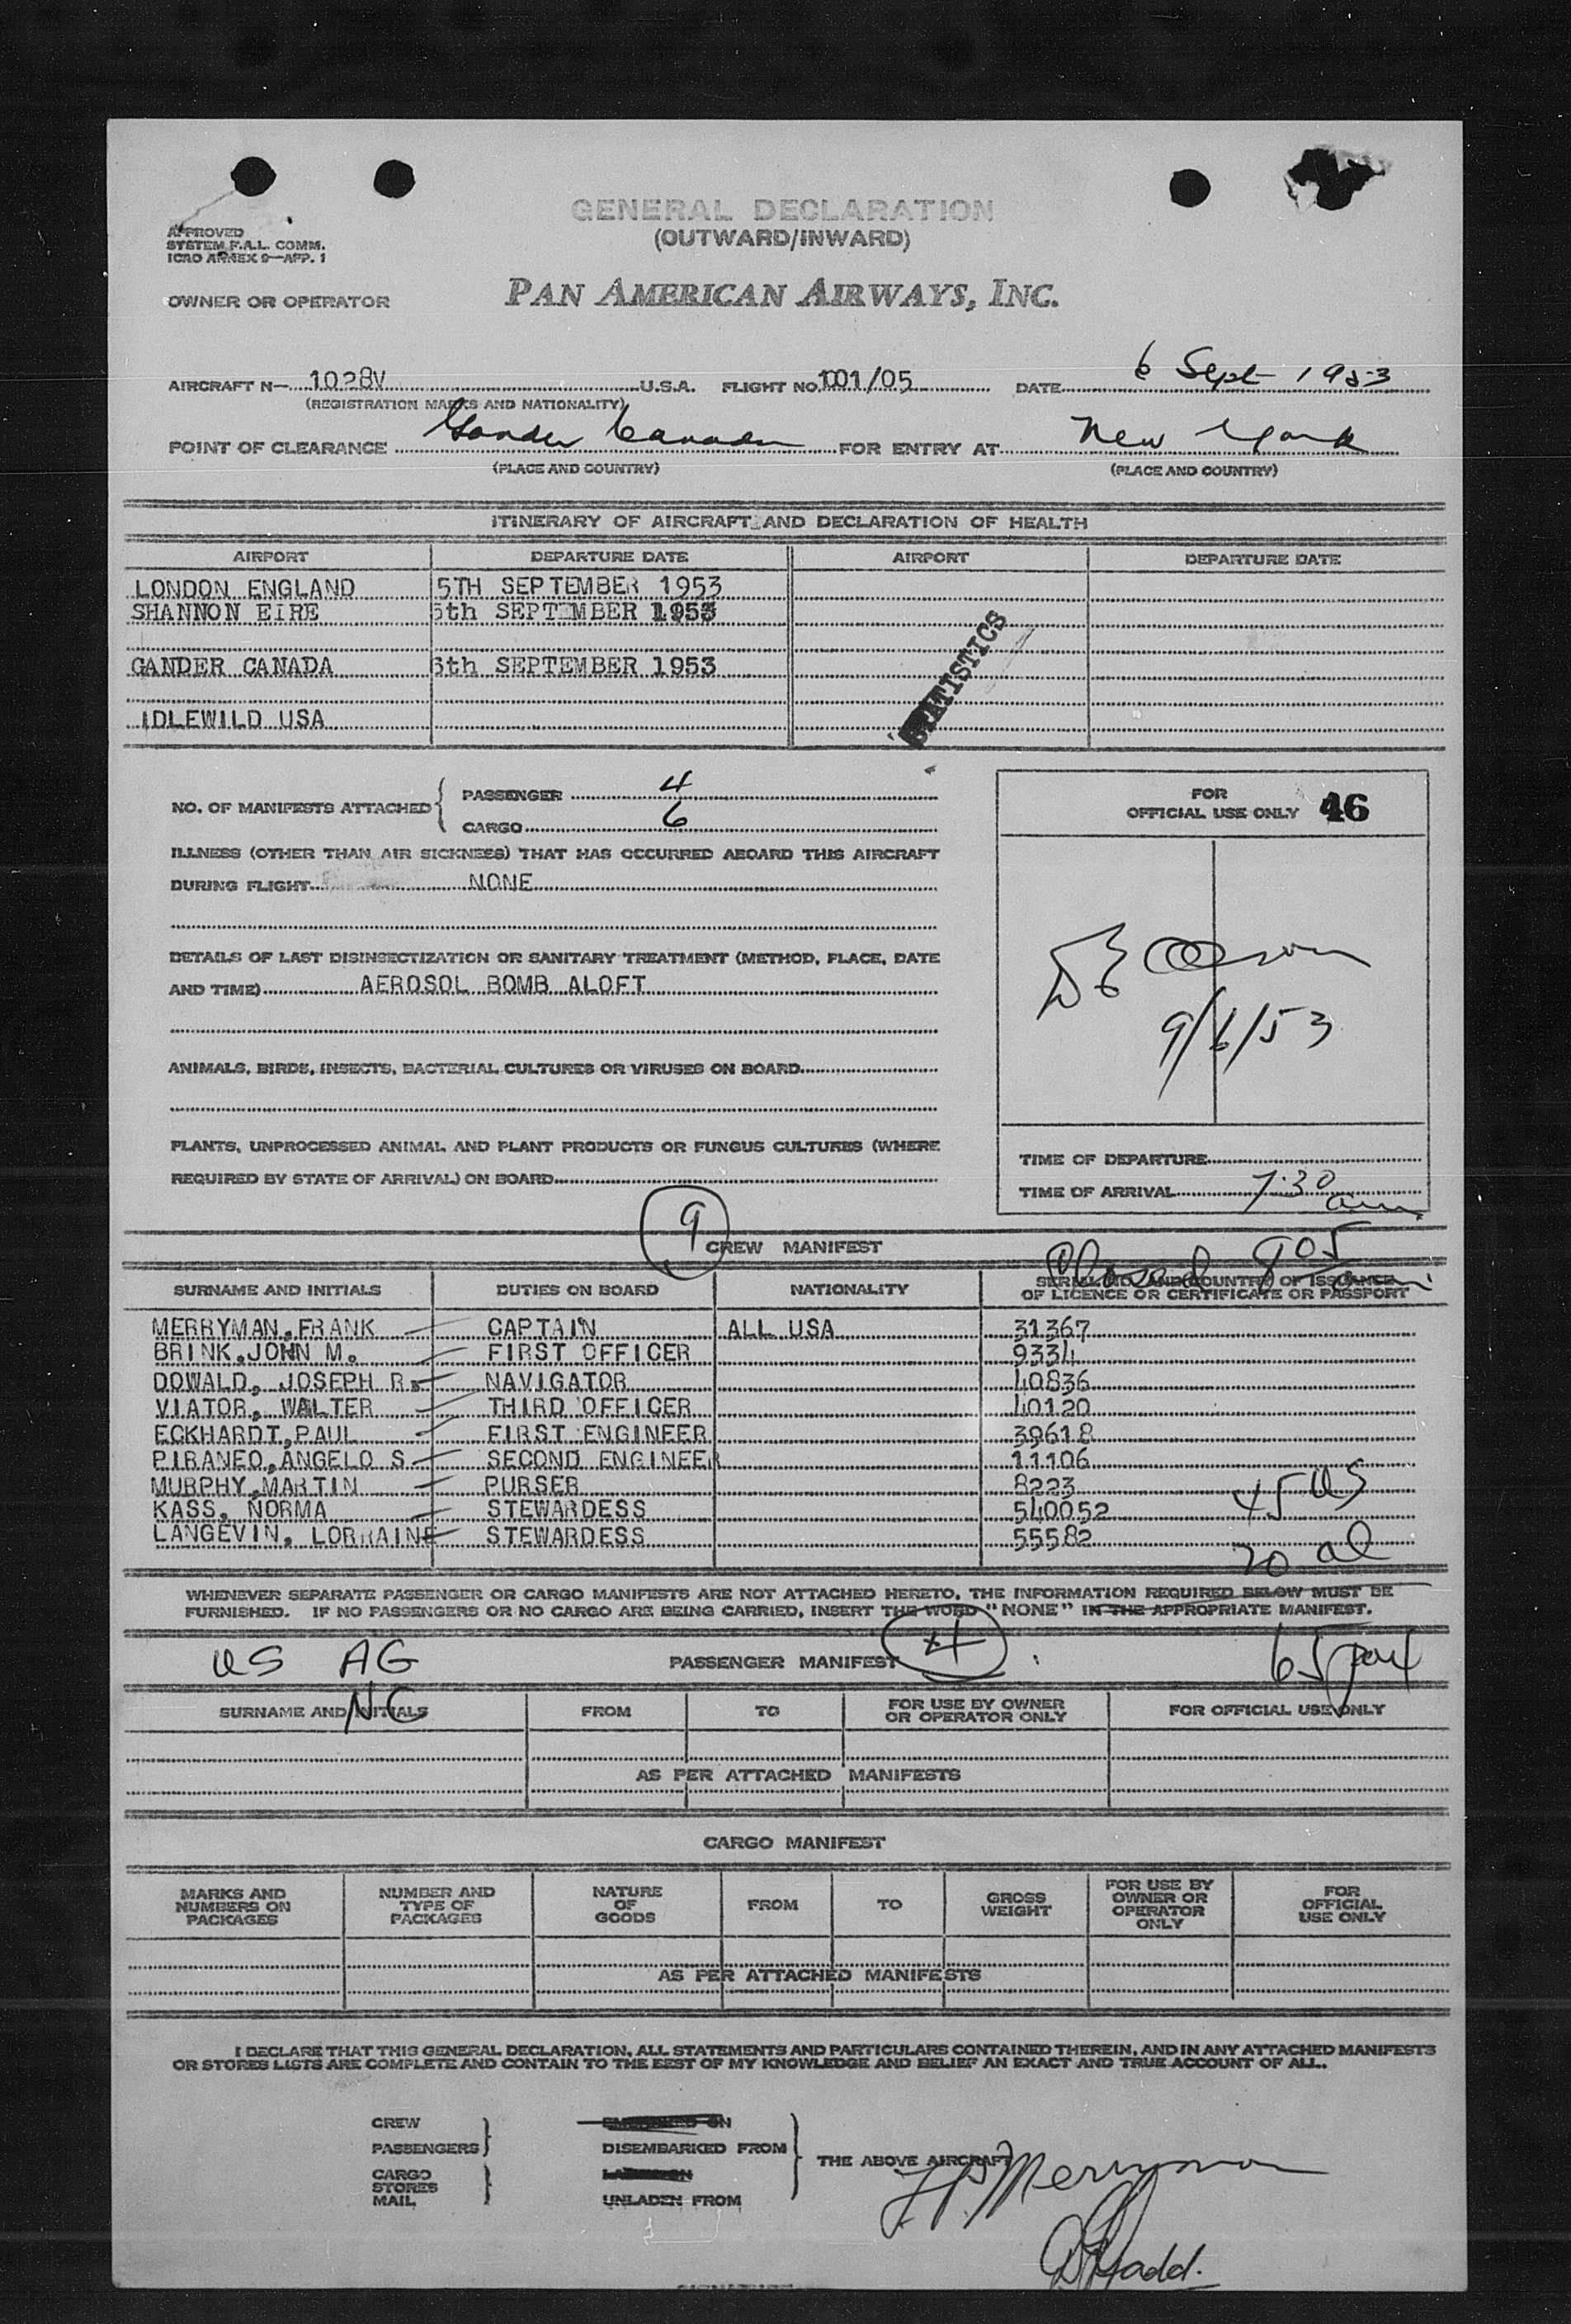 GENERAL DECLARATION
(OUTWARD/INWARD)
APPROVED
SYSTEM F.A.L. COMM.
ICAO ANNEX 9—APP. 1
OWNER OR OPERATOR PAN AMERICAN AIRWAYS, INC.
AIRCRAFT N— 1028V U.S.A. FLIGHT NO. 001/05 DATE 6 Sept 1953
(REGISTRATION MARKS AND NATIONALITY)
POINT OF CLEARANCE Gander Canada FOR ENTRY AT New York
(PLACE AND COUNTRY) (PLACE AND COUNTRY)
ITINERARY OF AIRCRAFT AND DECLARATION OF HEALTH
AIRPORT DEPARTURE DATE AIRPORT DEPARTURE DATE
LONDON ENGLAND 5TH SEPTEMBER 1953
SHANNON EIRE 5th SEPTEMBER 1953
GANDER CANADA 6th SEPTEMBER 1953
IDLEWILD USA
STATISTICS
NO. OF MANIFESTS ATTACHED PASSENGER 4
CARGO 6
FOR
OFFICIAL USE ONLY 46
ILLNESS (OTHER THAN AIR SICKNESS) THAT HAS OCCURRED ABOARD THIS AIRCRAFT
DURING FLIGHT NONE
DETAILS OF LAST DISINSECTIZATION OR SANITARY TREATMENT (METHOD, PLACE, DATE
AND TIME) AEROSOL BOMB ALOFT
9/6/53
ANIMALS, BIRDS, INSECTS, BACTERIAL CULTURES OR VIRUSES ON BOARD
PLANTS, UNPROCESSED ANIMAL AND PLANT PRODUCTS OR FUNGUS CULTURES (WHERE
REQUIRED BY STATE OF ARRIVAL) ON BOARD
TIME OF DEPARTURE
TIME OF ARRIVAL 7:30 am
9
CREW MANIFEST
Closed 905 am
SURNAME AND INITIALS DUTIES ON BOARD NATIONALITY SERIAL NO. AND COUNTRY OF ISSUANCE
OF LICENCE OR CERTIFICATE OR PASSPORT
MERRYMAN, FRANK CAPTAIN ALL USA 31367
BRINK, JOHN M. FIRST OFFICER 9334
DOWALD, JOSEPH R. NAVIGATOR 40836
VIATOR, WALTER THIRD OFFICER 40120
ECKHARDT, PAUL FIRST ENGINEER 39618
PIRANEO, ANGELO S SECOND ENGINEER 11106
MURPHY, MARTIN PURSER 8223
KASS, NORMA STEWARDESS 540052
LANGEVIN, LORRAINE STEWARDESS 55582
45 US
20 al
WHENEVER SEPARATE PASSENGER OR CARGO MANIFESTS ARE NOT ATTACHED HERETO, THE INFORMATION REQUIRED BELOW MUST BE
FURNISHED. IF NO PASSENGERS OR NO CARGO ARE BEING CARRIED, INSERT THE WORD "NONE" IN THE APPROPRIATE MANIFEST.
US AG PASSENGER MANIFEST 4 65
NC
SURNAME AND INITIALS FROM TO FOR USE BY OWNER
OR OPERATOR ONLY FOR OFFICIAL USE ONLY
AS PER ATTACHED MANIFESTS
CARGO MANIFEST
MARKS AND
NUMBERS ON
PACKAGES
NUMBER AND
TYPE OF
PACKAGES
NATURE
OF
GOODS
FROM
TO
GROSS
WEIGHT
FOR USE BY
OWNER OR
OPERATOR
ONLY
FOR
OFFICIAL
USE ONLY
AS PER ATTACHED MANIFESTS
I DECLARE THAT THIS GENERAL DECLARATION, ALL STATEMENTS AND PARTICULARS CONTAINED THEREIN, AND IN ANY ATTACHED MANIFESTS
OR STORES LISTS ARE COMPLETE AND CONTAIN TO THE BEST OF MY KNOWLEDGE AND BELIEF AN EXACT AND TRUE ACCOUNT OF ALL.
CREW
PASSENGERS DISEMBARKED FROM
THE ABOVE AIRCRAFT
CARGO
STORES
MAIL UNLADEN FROM
F.P. Merryman